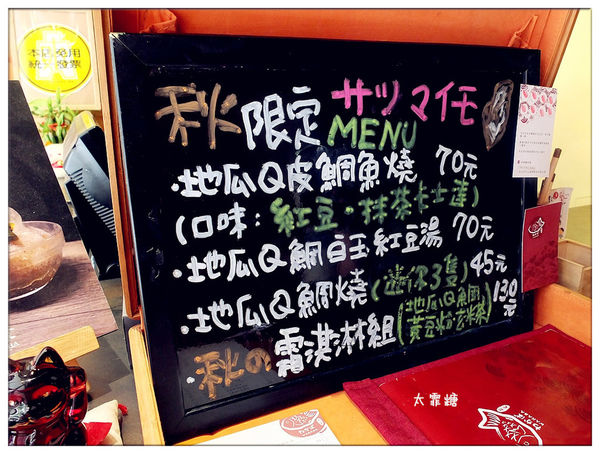 本店免用
統一發票
秋限定 サツマイモ
MENU
·地瓜Q皮鯛魚燒 70元
(口味：紅豆·抹茶卡士達)
·地瓜Q鯛白玉紅豆湯 70元
·地瓜Q鯛燒(迷你3隻) 45元
·秋の霜淇淋組(地瓜Q鯛 黃豆粉玄米茶) 130元
大霏糖